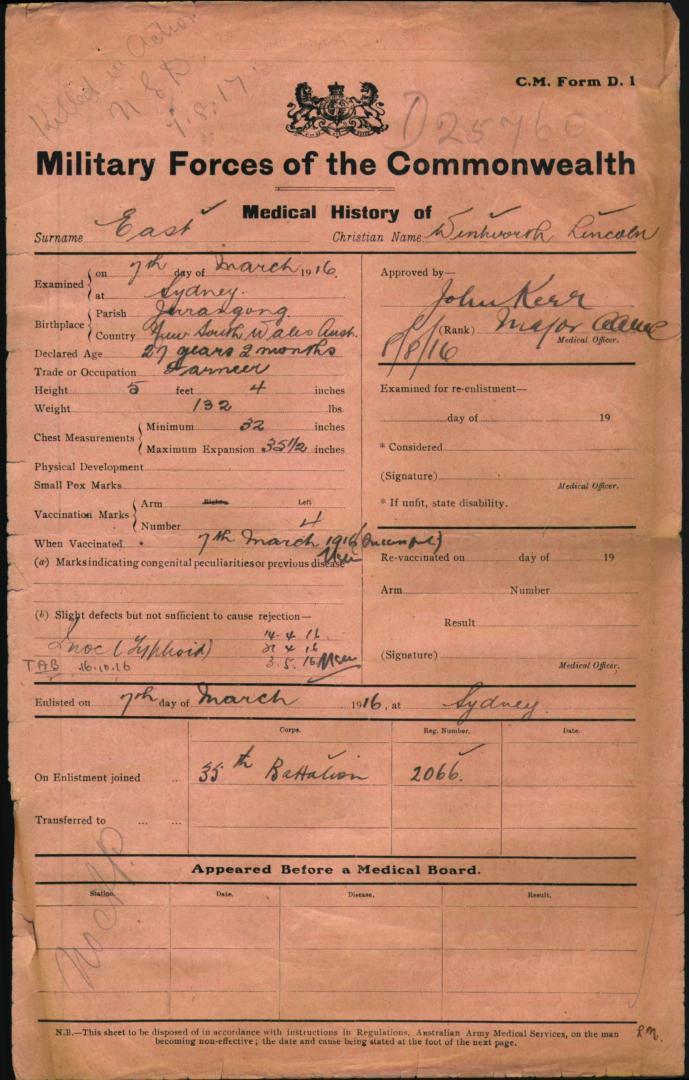 Killed in Action
7.8.17
C.M. Form D. 1
D 25766
Military Forces of the Commonwealth
Medical History of
Surname East Christian Name Wentworth Lincoln
Examined on 7th day of March 1916.
at Sydney.
Birthplace Parish Jerrangong.
Country New South Wales Aust.
Declared Age 27 years 2 months
Trade or Occupation Farmer
Height 5 feet 4 inches
Weight 132 lbs.
Chest Measurements Minimum 32 inches
Maximum Expansion 35 1/2 inches
Physical Development
Small Pox Marks
Vaccination Marks Arm Right Left
Number 4
When Vaccinated 7th March 1916
(a) Marks indicating congenital peculiarities or previous disease
(b) Slight defects but not sufficient to cause rejection—
Inoc (Typhoid) 14.4.16
21.4.16
3.5.16
TAB 16.10.16
Approved by—
John Kerr
(Rank) Major AAMC
Medical Officer.
8/8/16
Examined for re-enlistment—
day of 19
* Considered
(Signature)
Medical Officer.
* If unfit, state disability.
Re-vaccinated on day of 19
Arm Number
Result
(Signature)
Medical Officer.
Enlisted on 7th day of March 1916, at Sydney.
Corps. Reg. Number. Date.
On Enlistment joined ... 35th Battalion 2066.
Transferred to ... ...
Appeared Before a Medical Board.
Station. Date. Disease. Result.
N.B.—This sheet to be disposed of in accordance with instructions in Regulations, Australian Army Medical Services, on the man
becoming non-effective; the date and cause being stated at the foot of the next page.